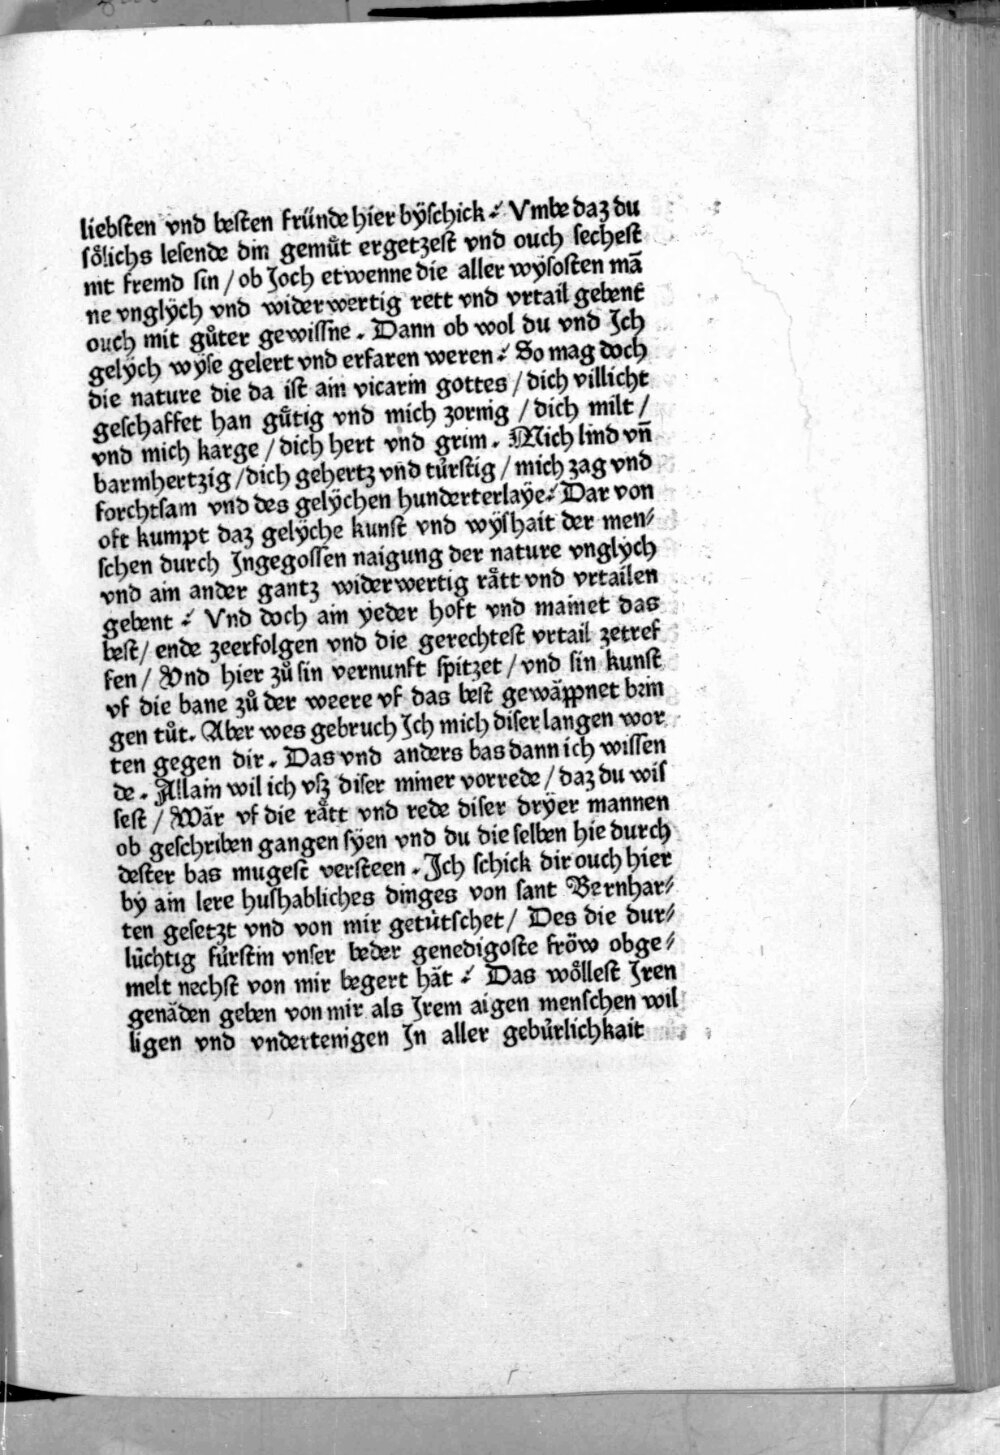 liebsten vnd besten fründe hier bÿschick ⸵ Vmbe daz du
sőlichs lesende din gemůt ergetzest vnd ouch sechest
nit fremd sin / ob Joch etwenne die aller wÿsosten mã
ne vnglÿch vnd widerwertig rett vnd vrtail gebent
ouch mit gůter gewissne . Dann ob wol du vnd Ich
gelÿch wÿse gelert vnd erfaren weren ⸵ So mag doch
die nature die da ist ain vicarin gottes / dich villicht
geschaffet han gůtig vnd mich zornig / dich milt /
vnd mich karge / dich hert vnd grim . Mich lind vñ
barmhertzig / dich gehertz vñd tůrstig / mich zag vnd
forchtsam vnd des gelÿchen hunderterlaÿe ⸵ Dar von
oft kumpt daz gelÿche kunst vnd wÿshait der men⸗
schen durch Ingegossen naigung der nature vnglÿch
vnd ain ander gantz widerwertig rått vnd vrtailen
gebent ⸵ Vnd doch ain yeder hoft vnd mainet das
best / ende zeerfolgen vnd die gerechtest vrtail zetref
fen / Vnd hier zů sin vernunft spitzet / vnd sin kunst
vf die bane zů der weere vf das best gewåppnet brin
gen tůt . Aber wes gebruch Ich mich diser langen wor
ten gegen dir . Das vnd anders bas dann ich wissen
de . Allain wil ich vsz diser miner vorrede / daz du wis
sest / Wår vf die rått vnd rede diser drÿer mannen
ob geschriben gangen sÿen vnd du die selben hie durch
dester bas mugest versteen . Ich schick dir ouch hier
bÿ ain lere hushabliches dinges von sant Bernhar⸗
ten gesetzt vnd von mir getütschet / Des die dur⸗
lüchtig fürstin vnser beder genedigoste fröw obge⸗
melt nechst von mir begert håt ⸵ Das wőllest Iren
genåden geben von mir als Irem aigen menschen wil
ligen vnd vndertenigen In aller gebůrlichkait